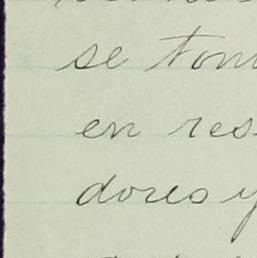 se tom
en res
dores y